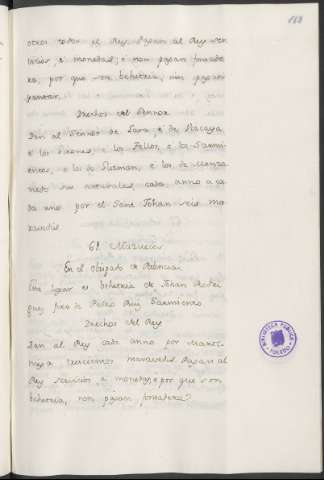 168
otros todos el Rey. Pagan al Rey ser
vicios, e monedas; e non pagan fonsade
ra, por que son behetria, nin pagan
yantar.
Derechos del Sennor
Dan al Sennor de Lara, e de Vizcaya,
e los Girones, e los Tellos, e los Sarmi-
entos, e los de Guzman, e los de Manza
nedo sus naturales, cada anno a ca
da uno por el Sant Johan seis ma
ravedis.
En el obispado de Palencia
Este logar es behetria de Johan Rodri
guez fijo de Pedro Ruiz Sarmiento
Derechos del Rey
Dan al Rey cada anno por Martini
ega trecientos maravedis. Pagan al
Rey servicios e monedas, e por que son
behetria, non pagan fonsadera.
BIBLIOTECA PUBLICA
TOLEDO